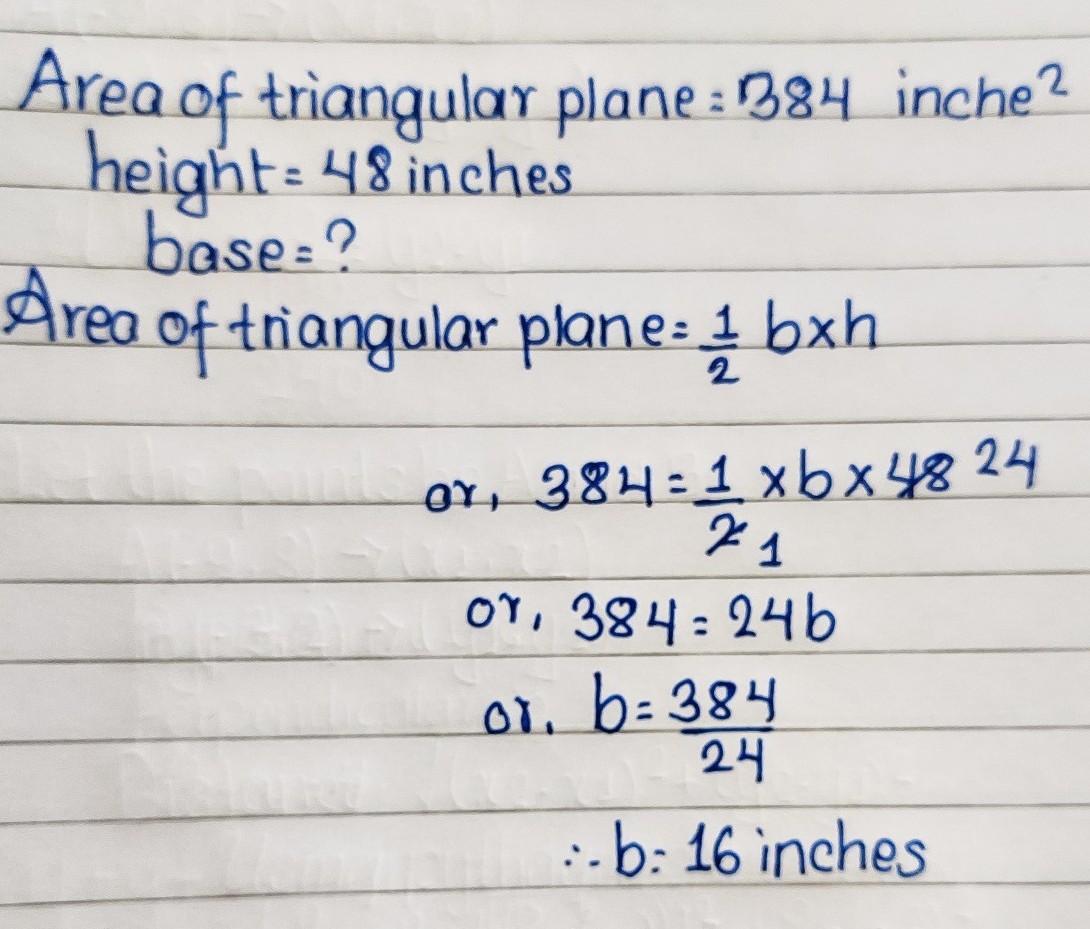 Area of triangular plane = 384 inche²
height = 48 inches
base = ?
Area of triangular plane = 1/2 b×h
or, 384 = 1/2 1 × b × 48 24
or, 384 = 24b
or, b = 384/24
∴ b = 16 inches